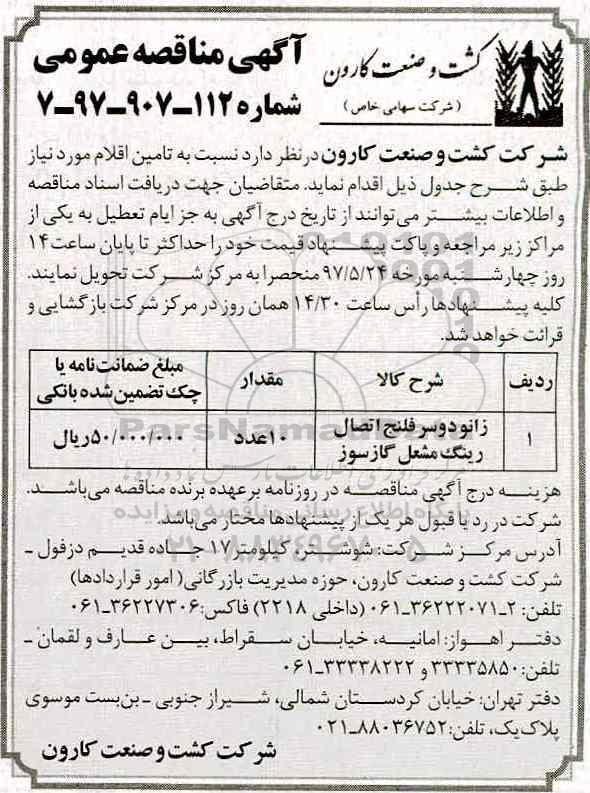 کشت و صنعت کارون
(شرکت سهامی خاص)
آگهی مناقصه عمومی
شماره ۱۱۲-۹۰۷-۹۷-۷
شرکت کشت و صنعت کارون در نظر دارد نسبت به تامین اقلام مورد نیاز
طبق شرح جدول ذیل اقدام نماید. متقاضیان جهت دریافت اسناد مناقصه
و اطلاعات بیشتر می‌توانند از تاریخ درج آگهی به جز ایام تعطیل به یکی از
مراکز زیر مراجعه و پاکت پیشنهاد قیمت خود را حداکثر تا پایان ساعت ۱۴
روز چهارشنبه مورخه ۹۷/۵/۲۴ منحصرا به مرکز شرکت تحویل نمایند.
کلیه پیشنهادها رأس ساعت ۱۴/۳۰ همان روز در مرکز شرکت بازگشایی و
قرائت خواهد شد.
ردیف شرح کالا مقدار مبلغ ضمانت‌نامه یا چک تضمین شده بانکی
۱ زانو دوسر فلنج اتصال رینگ مشعل گازسوز ۱۰عدد ۵۰/۰۰۰/۰۰۰ریال
هزینه درج آگهی مناقصه در روزنامه بر عهده برنده مناقصه می‌باشد.
شرکت در رد یا قبول هر یک از پیشنهادها مختار می‌باشد.
آدرس مرکز شرکت: شوشتر، کیلومتر ۱۷ جاده قدیم دزفول -
شرکت کشت و صنعت کارون، حوزه مدیریت بازرگانی( امور قراردادها)
تلفن: ۲-۳۶۲۲۲۰۷۱-۰۶۱ (داخلی ۲۲۱۸) فاکس:۳۶۲۲۷۳۰۶-۰۶۱
دفتر اهواز: امانیه، خیابان سقراط، بین عارف و لقمان -
تلفن:۳۳۳۳۵۸۵۰ و ۳۳۳۳۸۲۲۲-۰۶۱
دفتر تهران: خیابان کردستان شمالی، شیراز جنوبی - بن‌بست موسوی
پلاک یک، تلفن:۸۸۰۳۶۷۵۲-۰۲۱
شرکت کشت و صنعت کارون
ParsNamadData
پایگاه اطلاع رسانی مناقصه و مزایده
۰۲۱-۸۸۳۴۹۶۷۰-۵